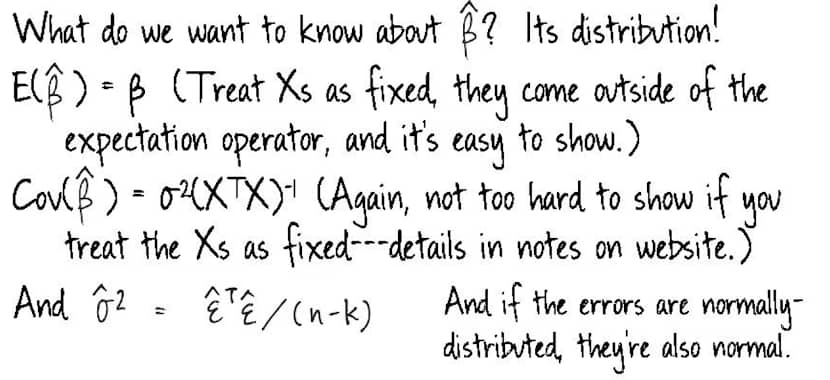 What do we want to know about β̂? Its distribution!
E(β̂) = β (Treat Xs as fixed, they come outside of the
expectation operator, and it's easy to show.)
Cov(β̂) = σ²(XᵀX)⁻¹ (Again, not too hard to show if you
treat the Xs as fixed---details in notes on website.)
And σ̂² = ε̂ᵀε̂/(n-k)
And if the errors are normally-
distributed, they're also normal.